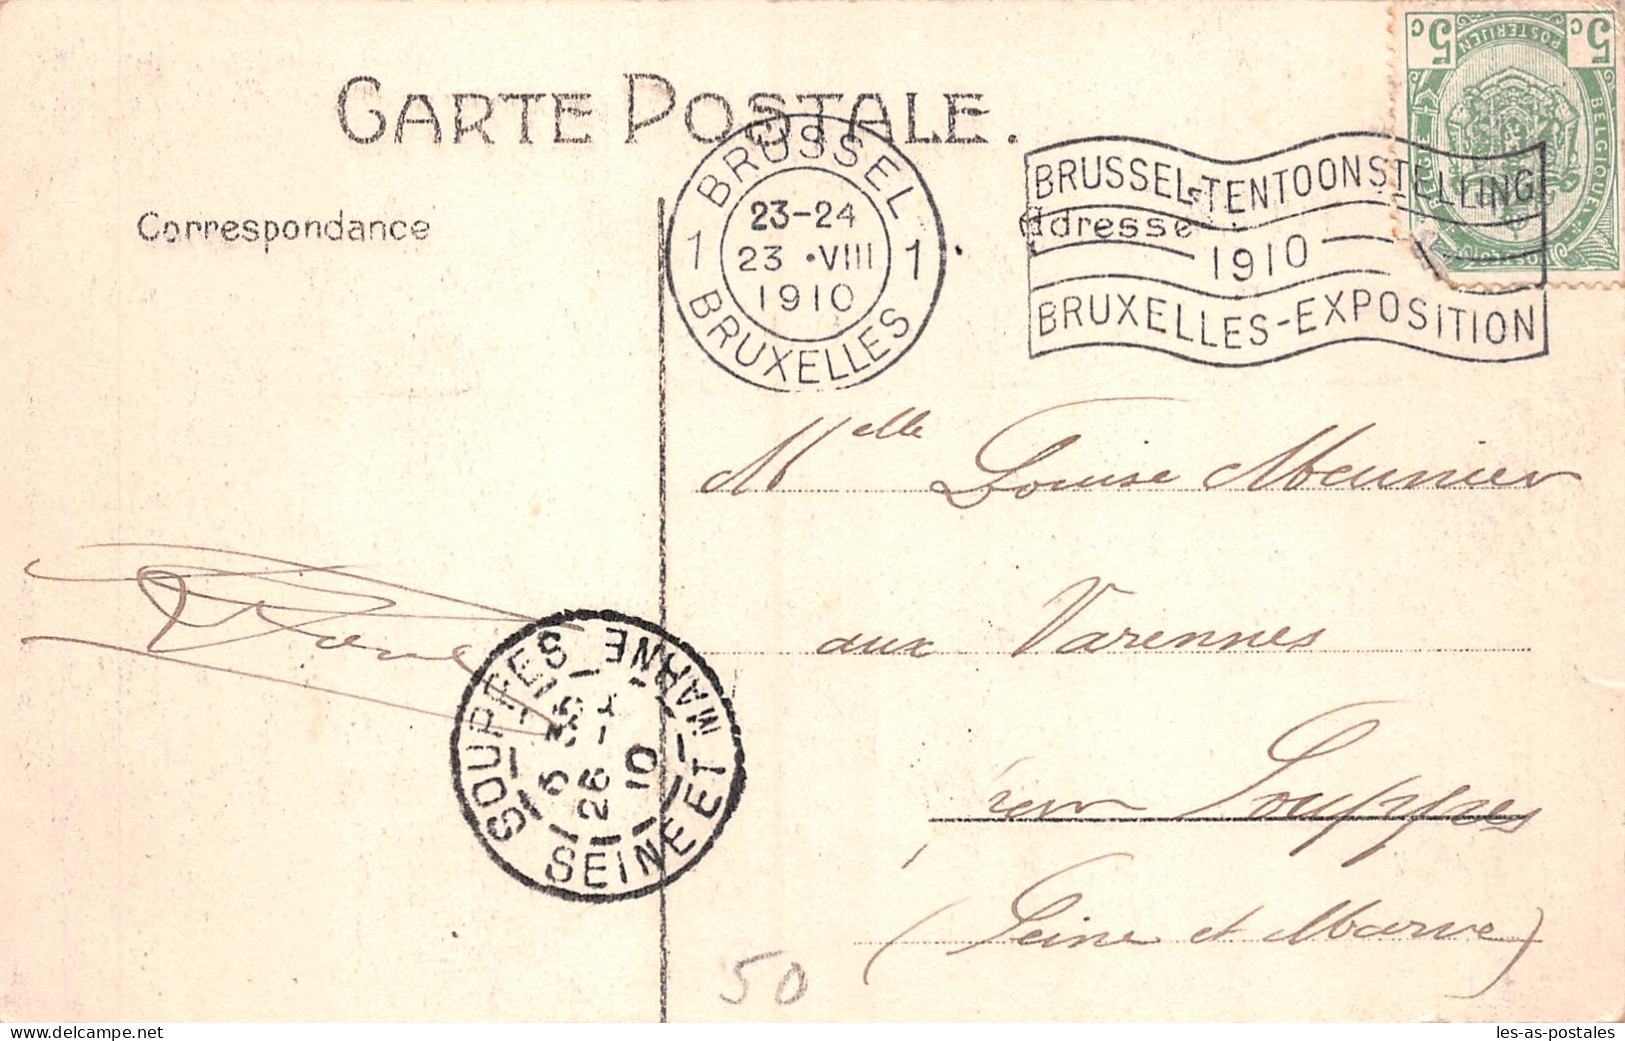 CARTE POSTALE.
Correspondance
Adresse
BRUSSEL
23-24
23 •VIII
1910
1 1
BRUXELLES
BRUSSEL-TENTOONSTELLING
1910
BRUXELLES-EXPOSITION
5c 5c
POSTERIJEN
BELGIQUE
Melle Louise Meunier
aux Varennes
par Souppes
(Seine et Marne)
SOUPPES
SEINE ET MARNE
26
10
50
https://www.delcampe.net
les-as-postales